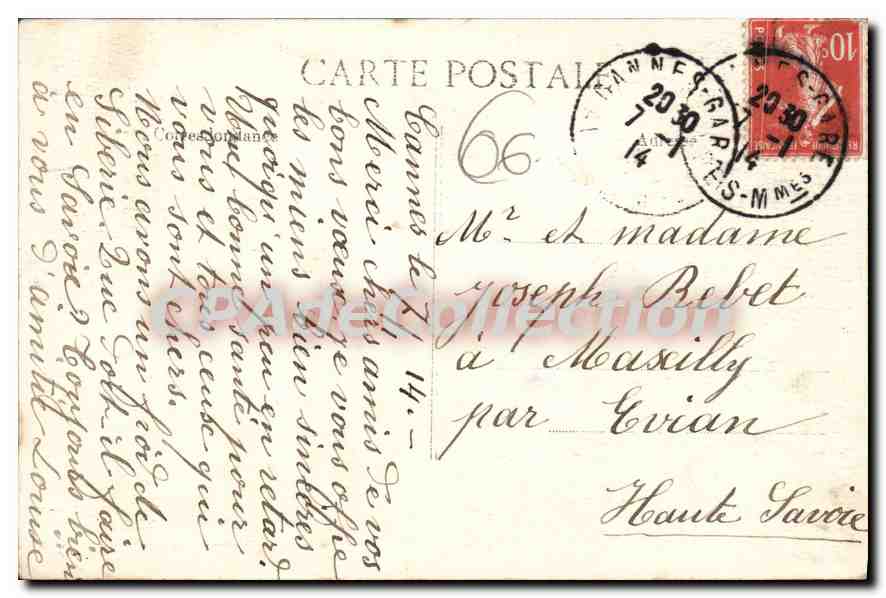 CARTE POSTALE
Correspondance
Adresse
66
CANNES-GARE
20 30
7 -1
14
ALPES-MMES
10
CPAdeCollection
Mr. et madame
Joseph Rebet
à Maxilly
par Evian
Haute Savoie
Cannes le 7/1 14.-
Merci chers amis de vos
bons vœux, je vous offre
les miens bien sincères
quoiqu'un peu en retard.
bonne santé pour
vous et tous ceux qui
vous sont chers.
Nous avons un froid de
Siberie. Que doit il faire
en Savoie? Toujours bien
à vous d'amitié Louise